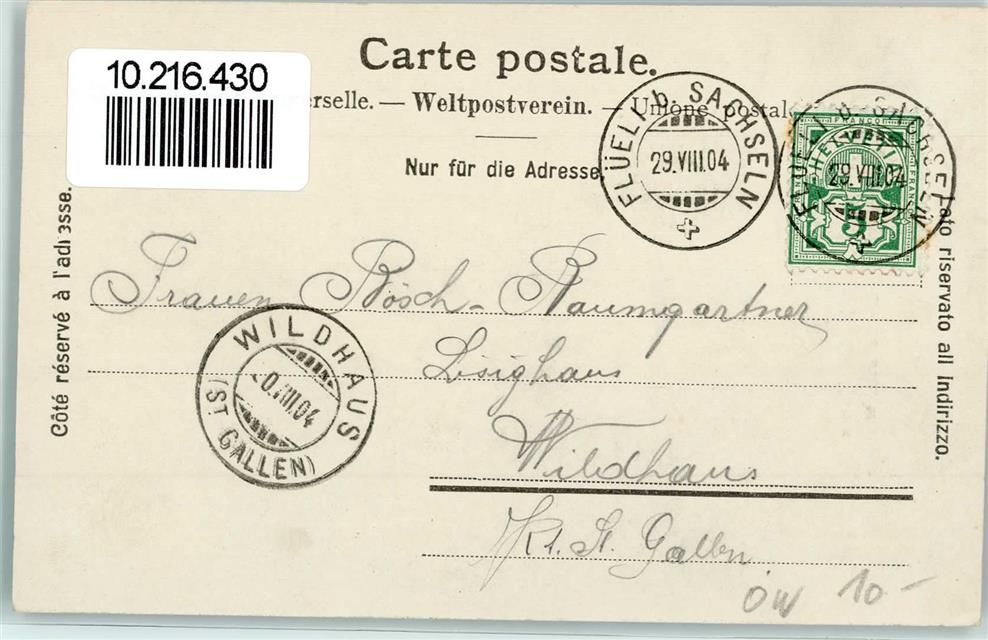 10.216.430
Carte postale.
erselle. — Weltpostverein. — Unione postal
Nur für die Adresse
Côté réservé à l'adresse.
lato riservato all indirizzo.
FLÜELI b. SACHSELN
29.VIII.04
FLÜELI b. SACHSELN
29.VIII.04
FRANCO
HELVETIA
FRANCO
5
Frauen Bösch-Baumgartner
Lisighaus
Wildhaus
Kt. St. Gallen
WILDHAUS
0.VIII.04
(ST GALLEN)
OW 10-